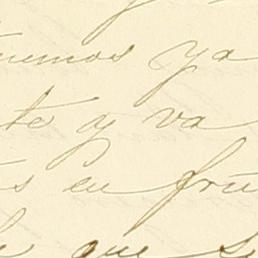 uemos ya
te y va
s en fru
que s